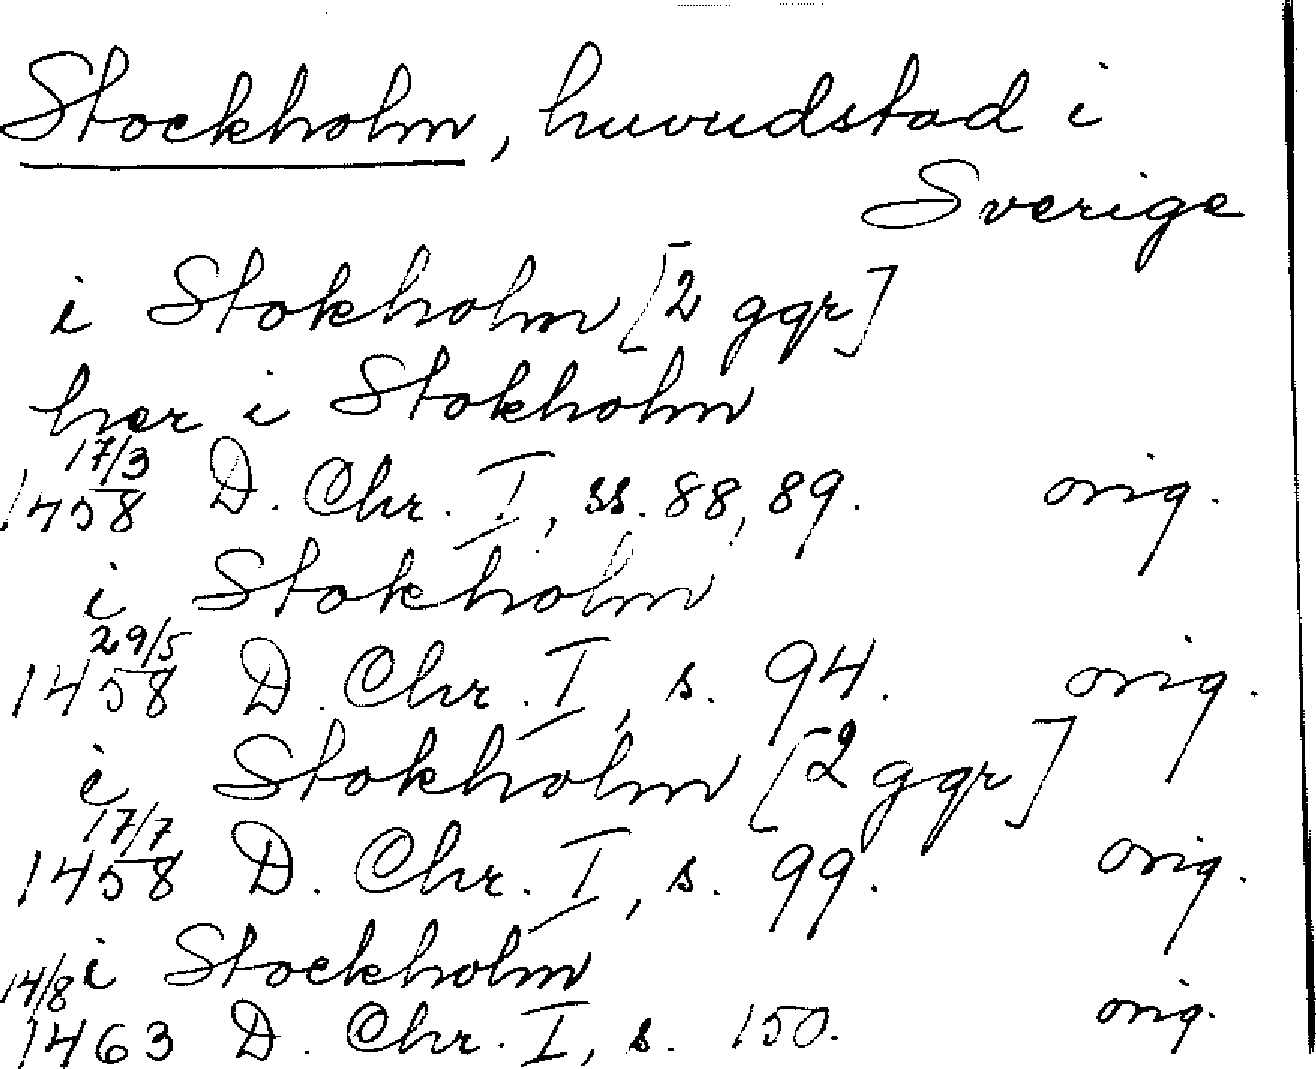 Stockholm, huvudstad i
Sverige
i Stokholm [2 ggr]
her i Stokholm
17/3
1458 D. Chr. I, ss. 88, 89. orig.
i Stokholm
29/5
1458 D. Chr. I, s. 94. orig.
i Stokholm [2 ggr]
17/7
1458 D. Chr. I, s. 99. orig.
i Stockholm
14/8
1463 D. Chr. I, s. 150. orig.